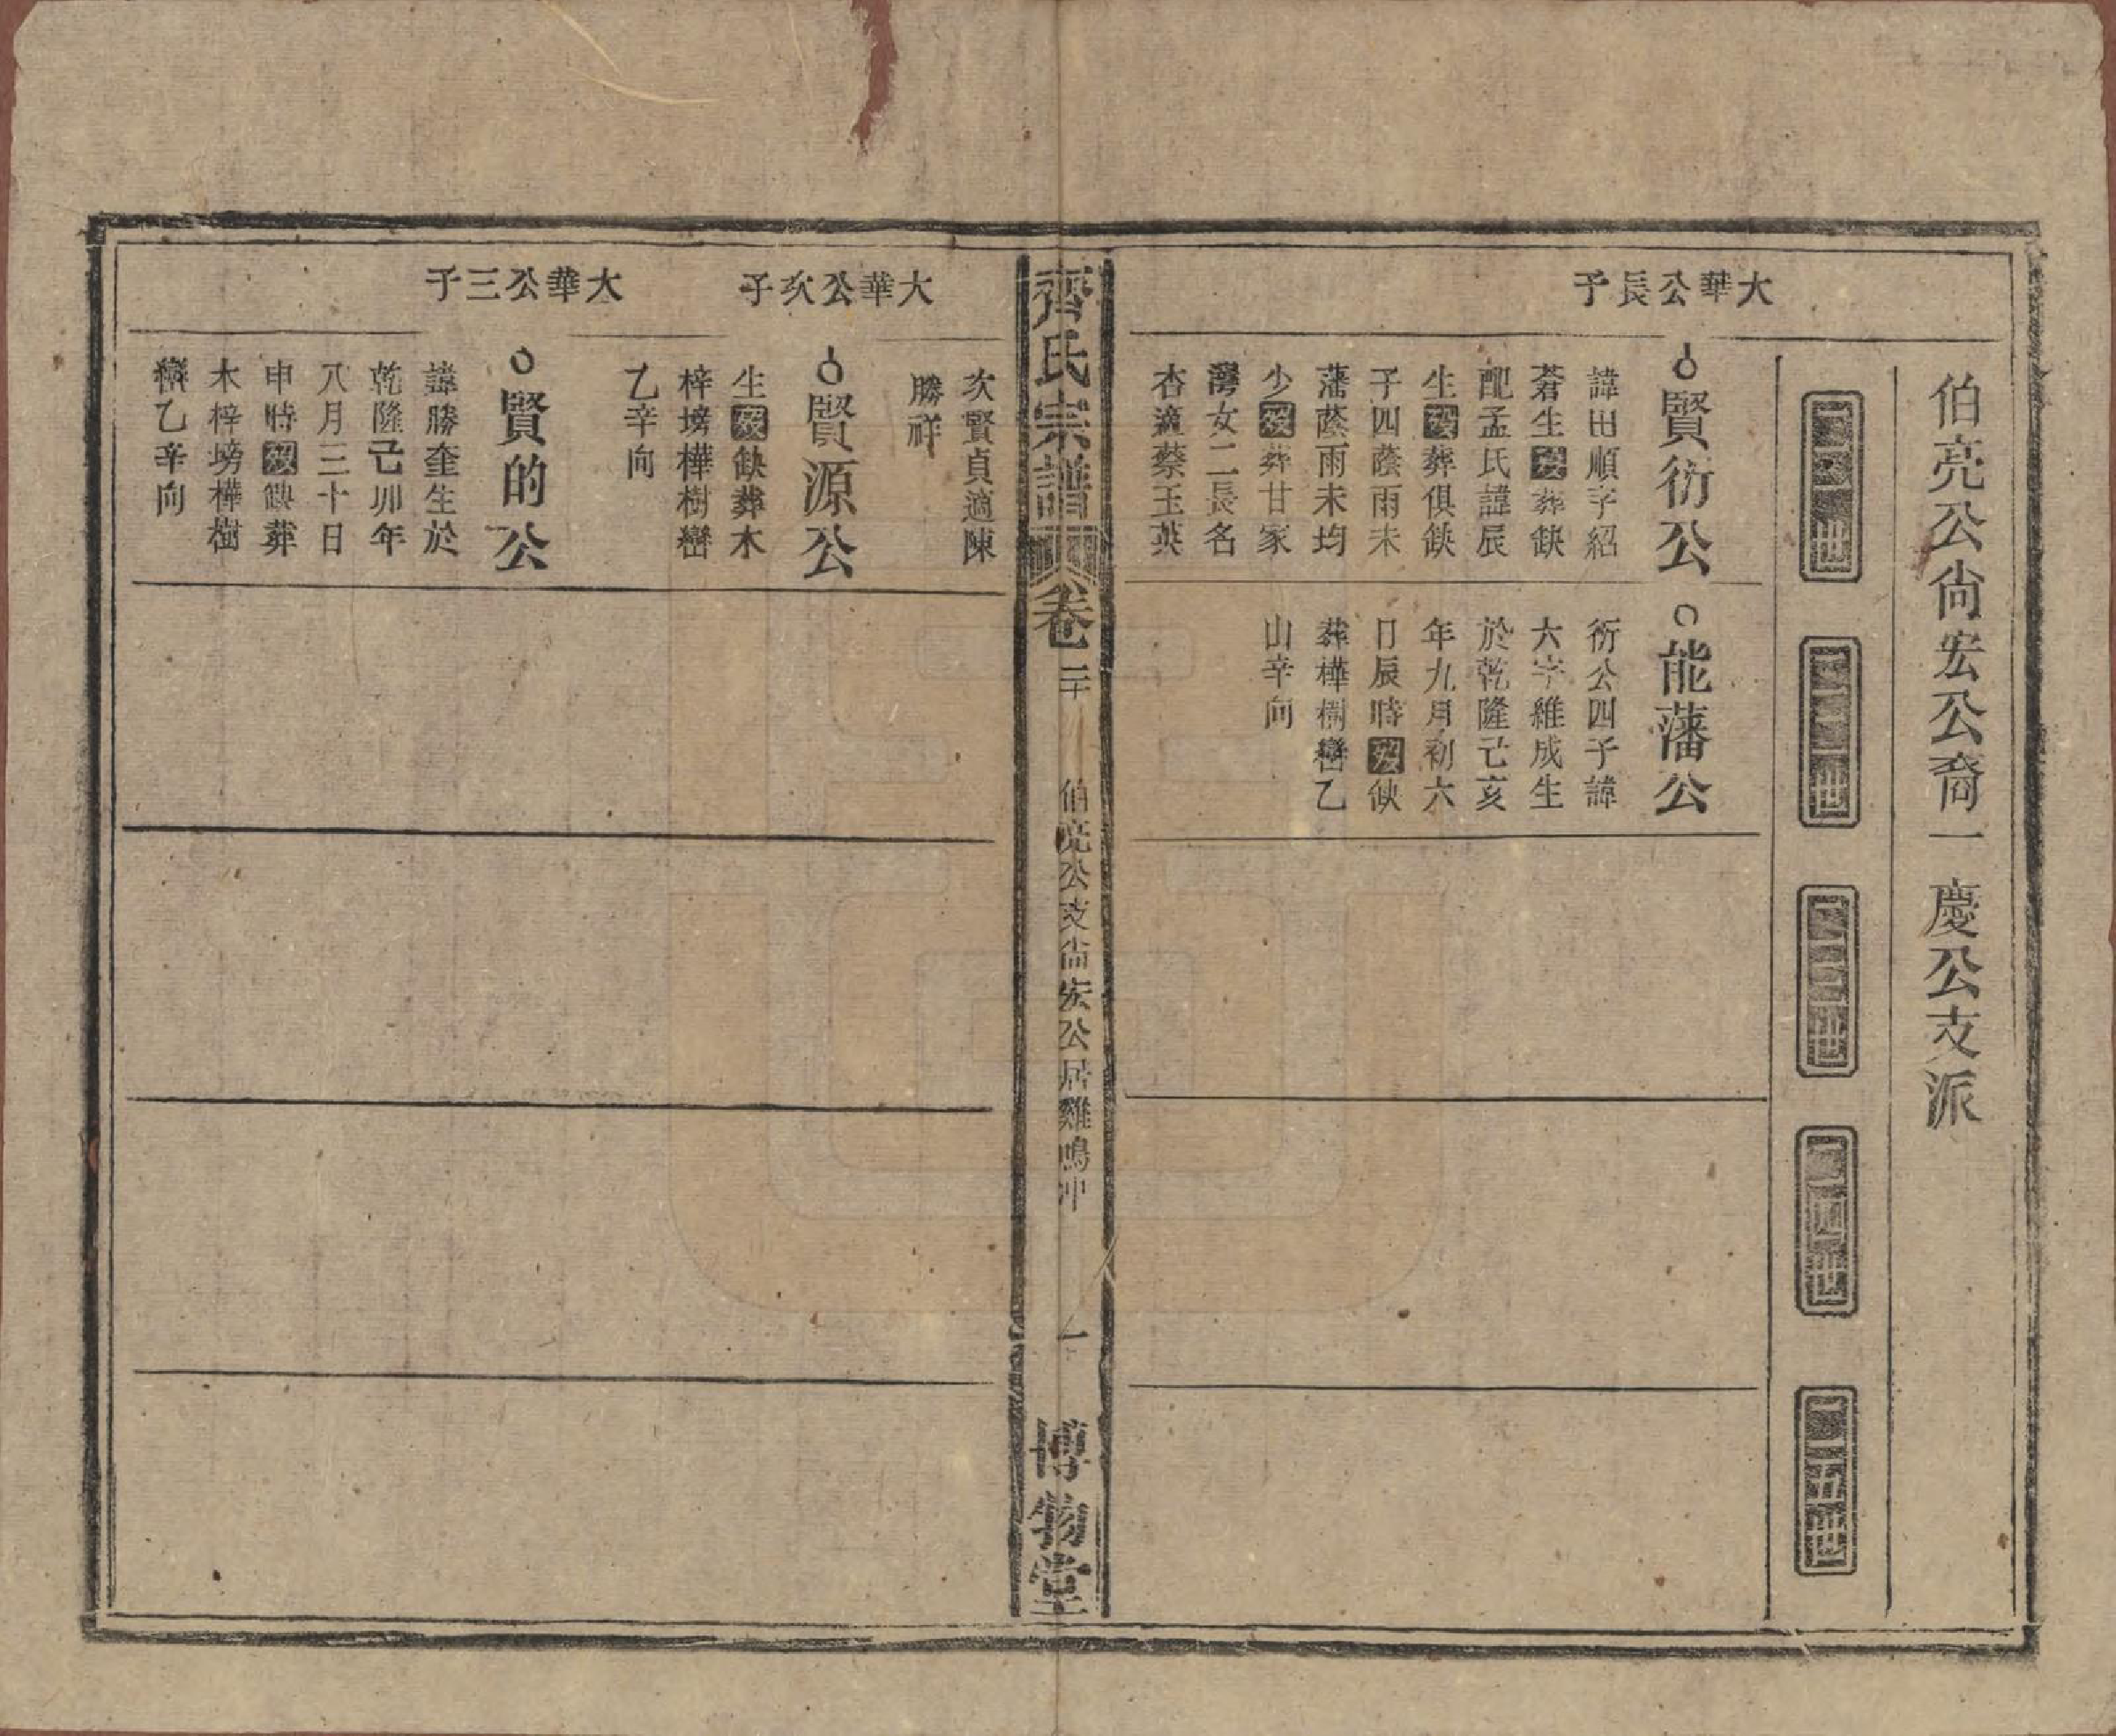 伯亮公尚宏公裔一慶公支派
二一世
二二世
二三世
二四世
二五世
大華公長子
賢衍公
諱田順字紹
蒼生歿葬缺
配孟氏諱辰
生歿葬俱缺
子四蔭雨未
藩蔭雨未均
少歿葬甘家
灣女二長名
杏適蔡玉英
能藩公
衍公四子諱
六字維成生
於乾隆己亥
年九月初六
日辰時歿缺
葬樺樹巒乙
山辛向
齊氏宗譜
卷二十
伯亮公支尚宏公居雞鳴冲
一
博物堂
次賢貞適陳
勝祥
大華公次子
賢源公
生歿缺葬木
梓塝樺樹巒
乙辛向
大華公三子
賢的公
諱勝奎生於
乾隆己卯年
八月三十日
申時歿缺葬
木梓塝樺樹
巒乙辛向